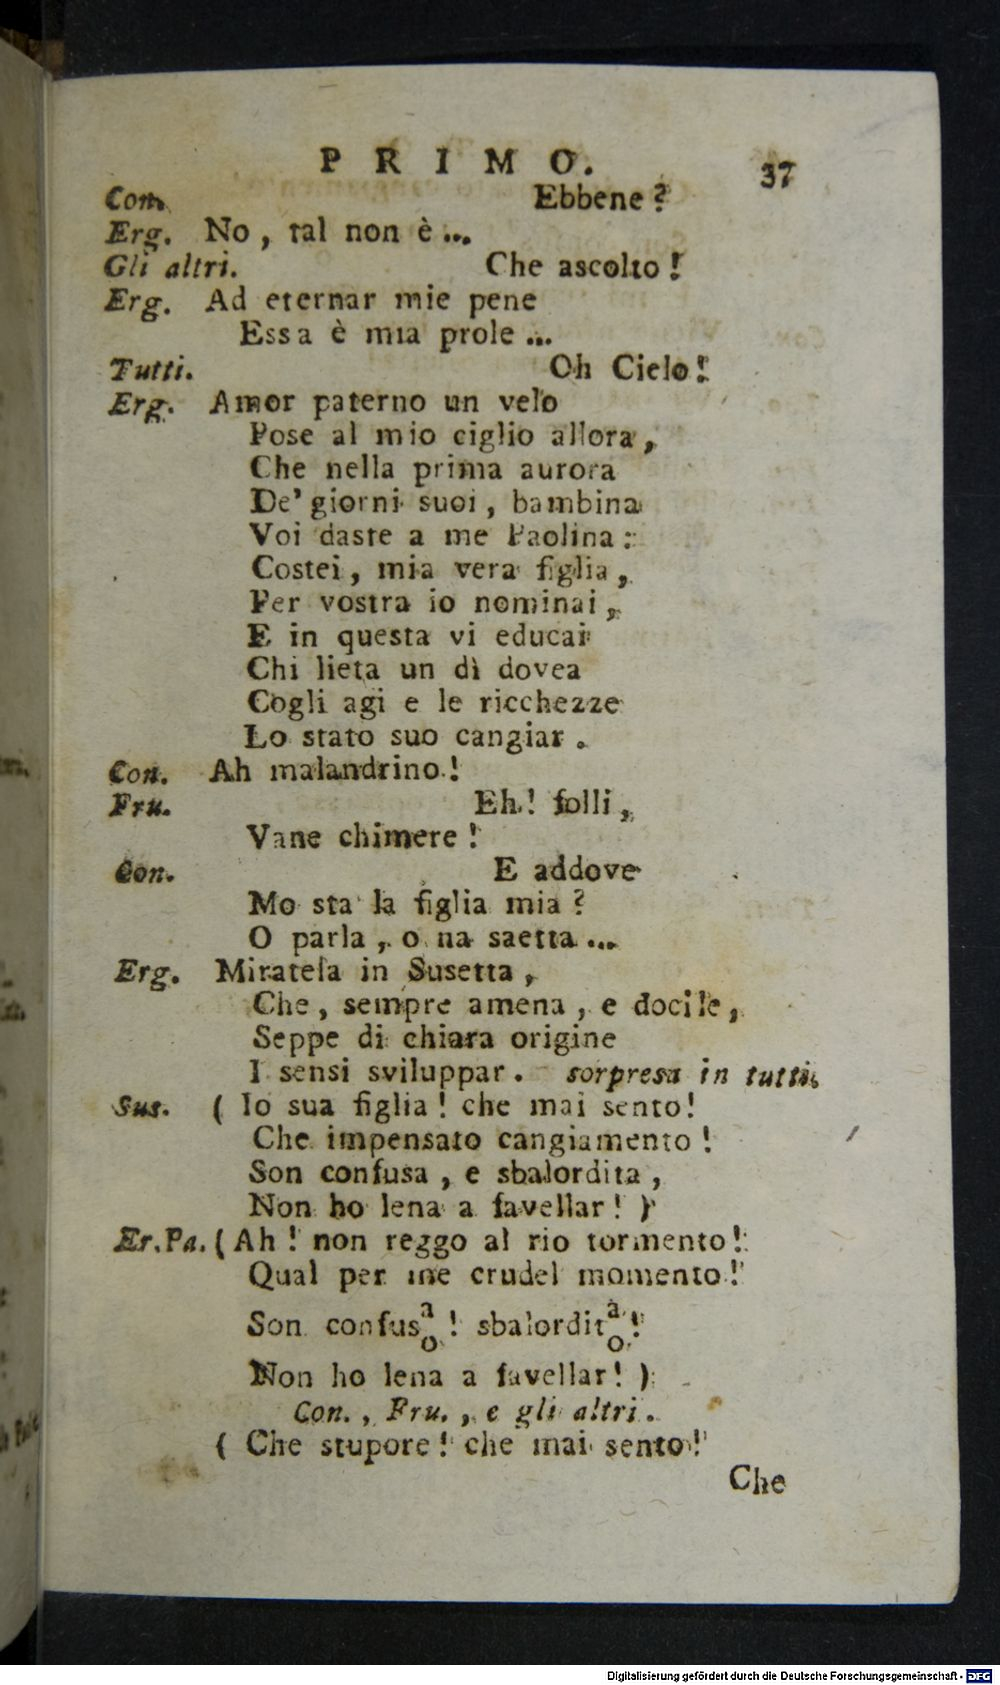 PRIMO. 37
Con. Ebbene?
Erg. No, tal non è...
Gli altri. Che ascolto!
Erg. Ad eternar mie pene
Essa è mia prole...
Tutti. Oh Cielo!
Erg. Amor paterno un velo
Pose al mio ciglio allora,
Che nella prima aurora
De' giorni suoi, bambina
Voi daste a me Paolina:
Costei, mia vera figlia,
Per vostra io nominai,
E in questa vi educai
Chi lieta un dì dovea
Cogli agi e le ricchezze
Lo stato suo cangiar.
Con. Ah malandrino!
Fru. Eh! folli,
Vane chimere!
Con. E addove
Mo sta la figlia mia?
O parla, o na saetta...
Erg. Miratela in Susetta,
Che, sempre amena, e docile,
Seppe di chiara origine
I sensi sviluppar. sorpresa in tutti.
Sus. (Io sua figlia! che mai sento!
Che impensato cangiamento!
Son confusa, e sbalordita,
Non ho lena a favellar!)
Er.Pa. (Ah! non reggo al rio tormento!
Qual per me crudel momento!
Son confus a/o! sbalordit a/o!
Non ho lena a favellar!)
Con., Fru., e gli altri.
(Che stupore! che mai sento!
Che
Digitalisierung gefördert durch die Deutsche Forschungsgemeinschaft - DFG